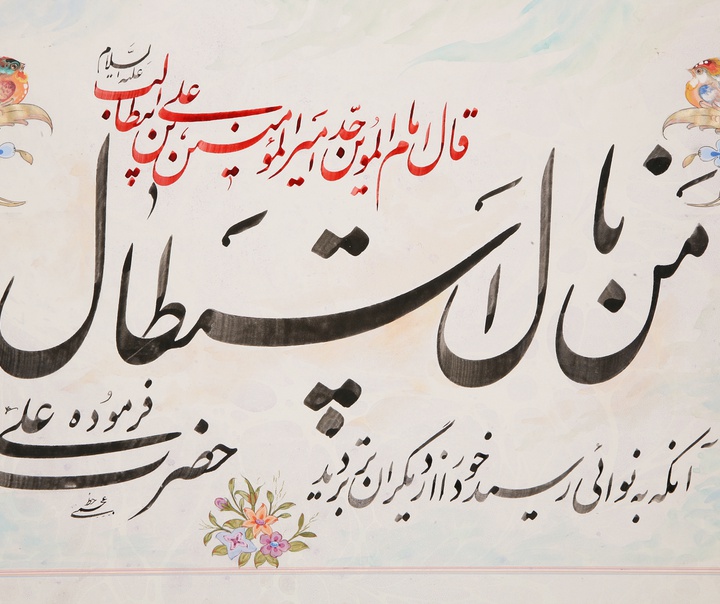 قال امام الموحّدین امیر المؤمنین علی بن ابیطالب علیه السلام
من نال استطال
آنکه به نوائی رسید خود را از دیگران برتر دید
فرموده حضرت علی ع